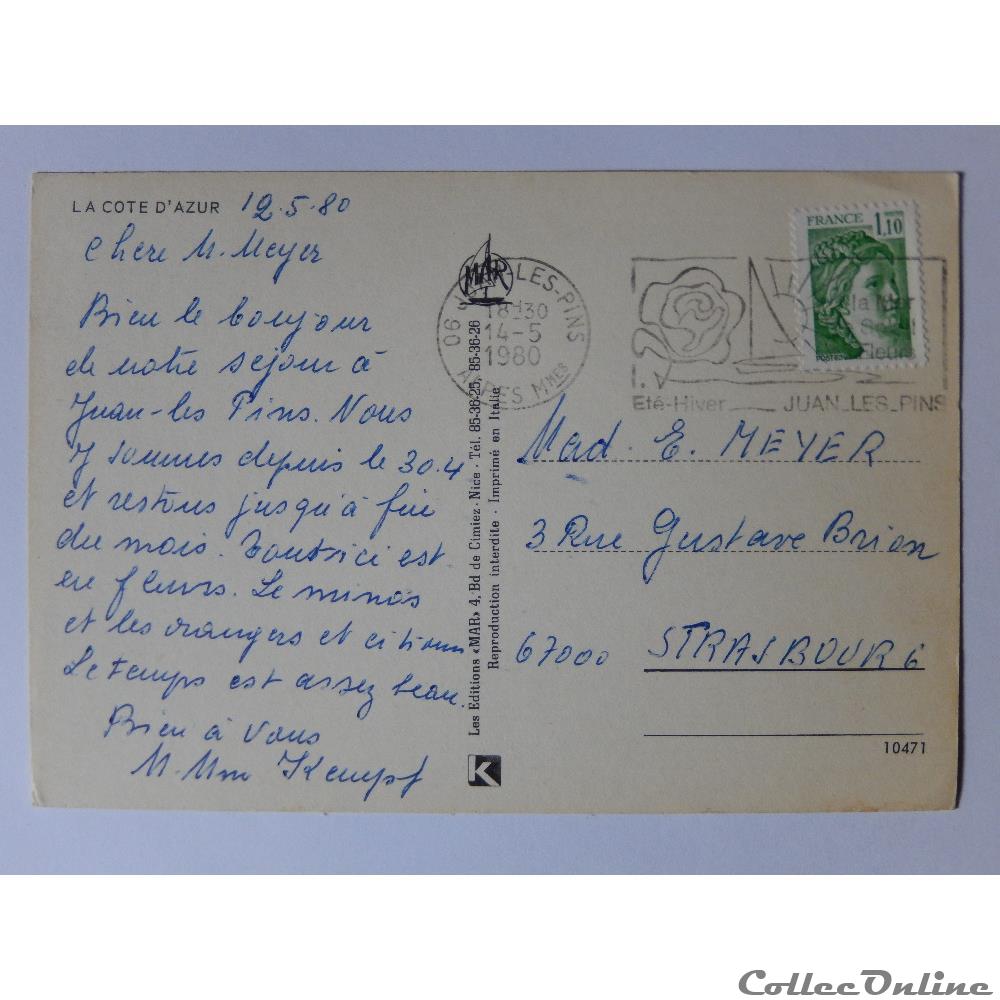 LA COTE D'AZUR 12.5.80
Chere M. Meyer
Bien le bonjour
de notre sejour à
Juan-les Pins. Nous
y sommes depuis le 30.4
et restons jusqu'à fin
du mois. Tout ici est
en fleurs. Le mimosas
et les orangers et citrons
Le temps est assez beau.
Bien à Vous
M. Mm Kempf
MAR
Les Editions «MAR» 4, Bd de Cimiez - Nice - Tél. 85-36-25, 85-36-26
Reproduction interdite - Imprimé en Italie
K
06 JUAN-LES-PINS
18H30
14-5
1980
ALPES Mmes
la Mer
Soleil
Fleurs
Eté-Hiver JUAN_LES_PINS
FRANCE 1,10
POSTES
Mad. E. MEYER
3 Rue Gustave Brion
67000 STRASBOURG
10471
CollecOnline